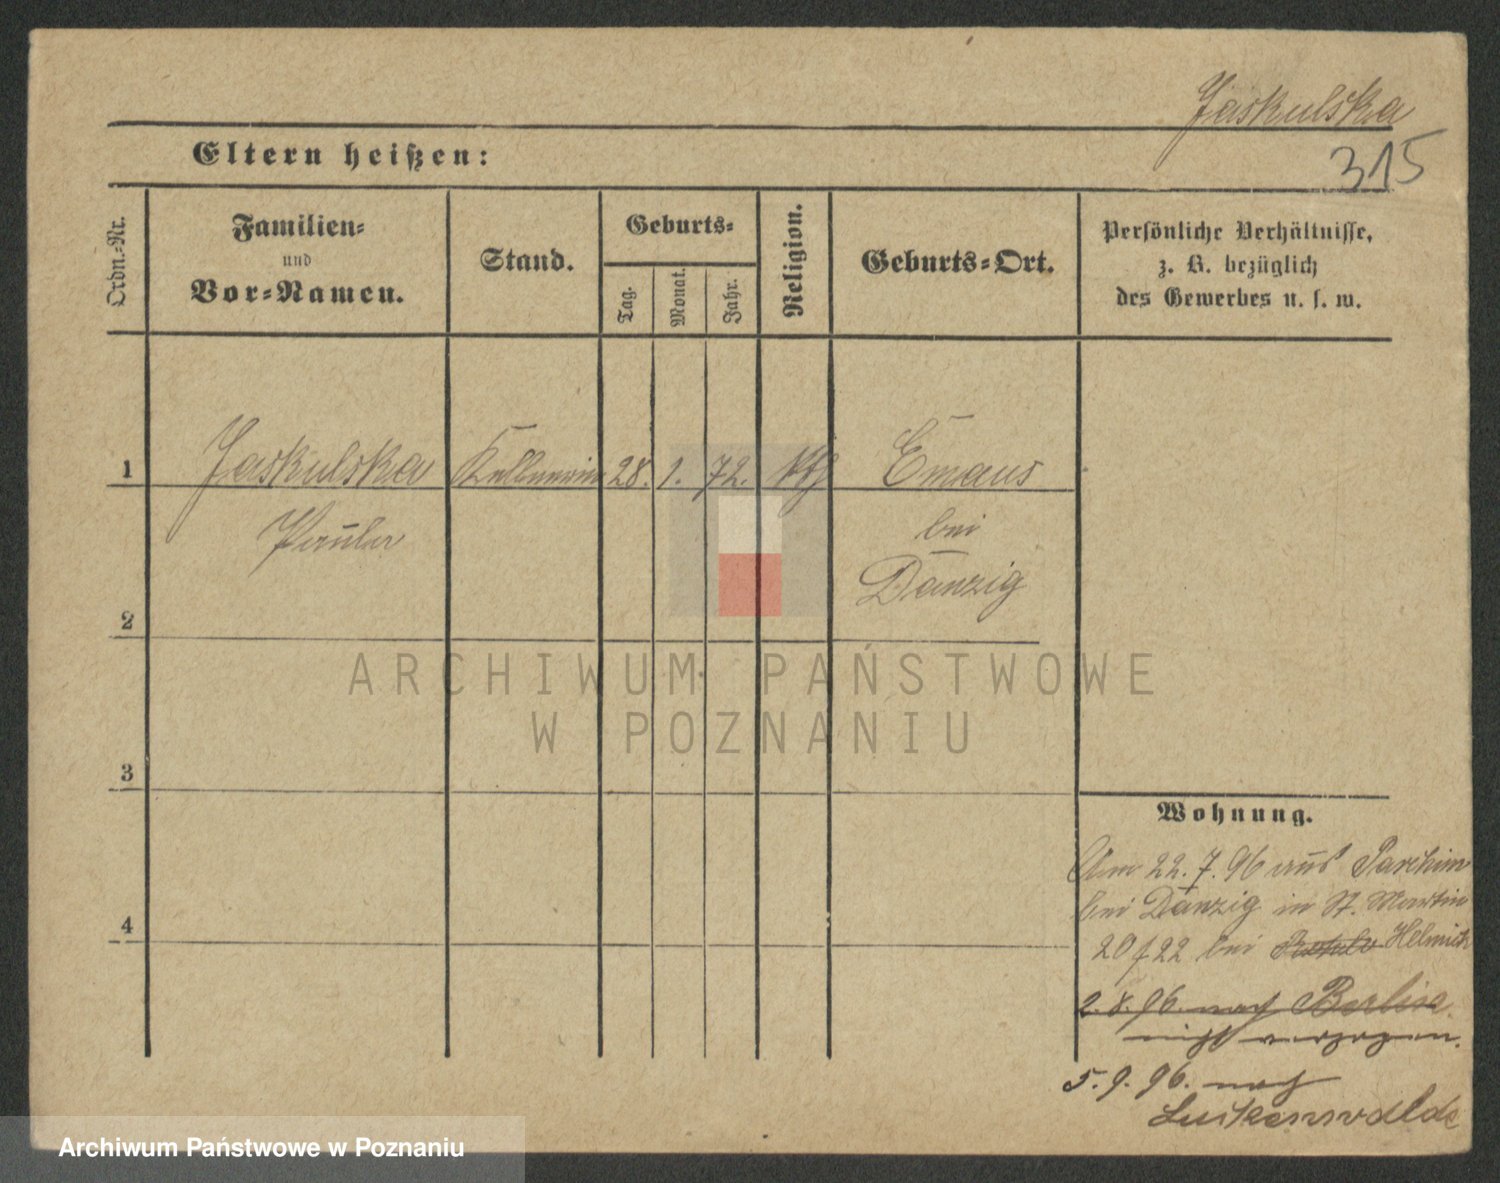 Jaskulska
315
Eltern heißen:
Ordn.-Nr.
Familien-
und
Vor-Namen.
Stand.
Geburts-
Tag.
Monat.
Jahr.
Religion.
Geburts-Ort.
Persönliche Verhältnisse,
z. B. bezüglich
des Gewerbes u. s. w.
1 Jaskulska Kellnerin 28. 1. 72. kth Emaus
Paula bei
Danzig
2
3
4
ARCHIWUM PAŃSTWOWE
W POZNANIU
Wohnung.
Am 22.7.96 aus
bei Danzig in St. Martin
20/22 bei Helmich
2.8.96. nach Berlin
nicht verzogen.
5.9.96. nach
Luckenwalde
Archiwum Państwowe w Poznaniu